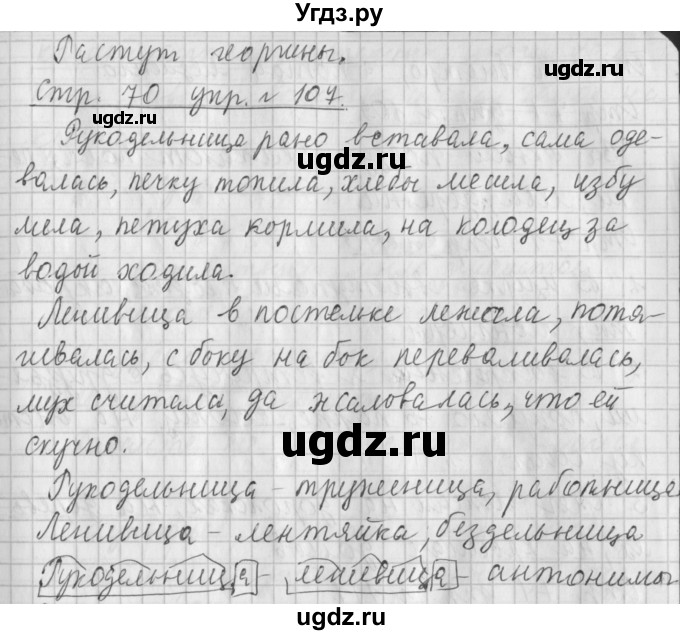 Угдз.ру
Растут георгины.
ugdz.ru
Стр. 70 упр. № 107.
ugdz.ru
Рукодельница рано вставала, сама оде-
ugdz.ru
валась, печку топила, хлебы месила, избу
мела, петуха кормила, на колодец за
ugdz.ru
водой ходила.
Ленивица в постельке лежала, потя-
гивалась, с боку на бок переваливалась,
мух считала, да жаловалась, что ей
ugdz.ru
скучно.
Рукодельница - труженица, работница
Ленивица - лентяйка, бездельница
Рукодельница - ленивица - антонимы
ugdz.ru
ugdz.ru